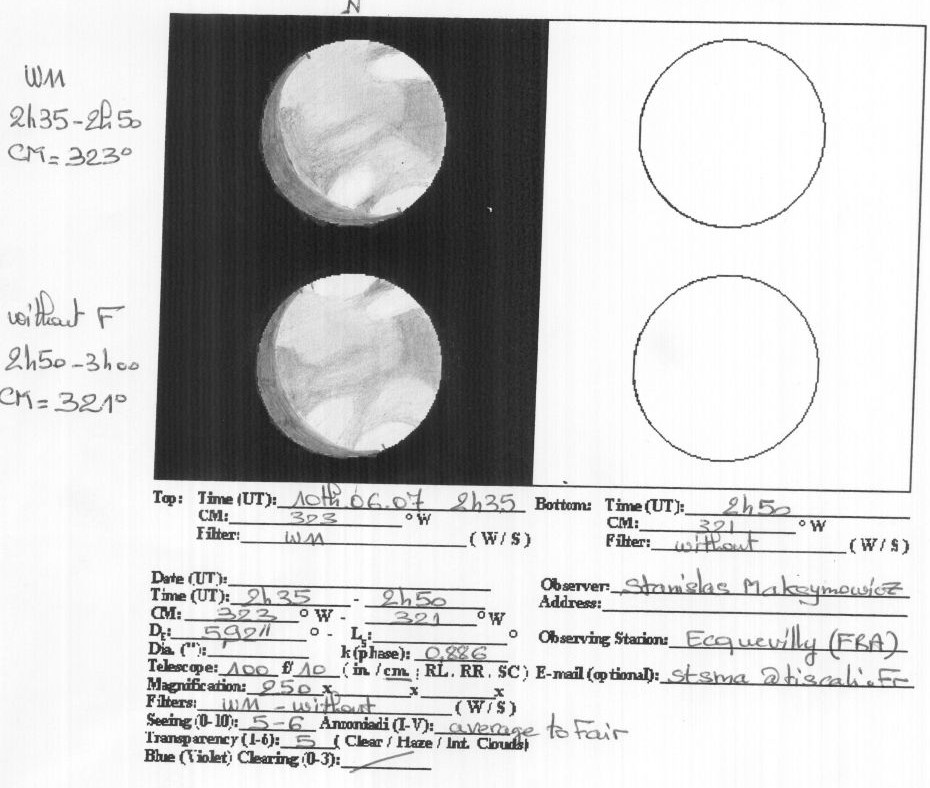 N
W11
2h35-2h50
CM=323°
without F
2h50-3h00
CM=321°
Top: Time (UT): 10th.06.07 2h35 Bottom: Time (UT): 2h50
CM: 323 °W CM: 321 °W
Filter: W11 (W/S) Filter: without (W/S)
Date (UT):
Time (UT): 2h35 - 2h50 Observer: Stanislas Maksymowicz
CM: 323 °W - 321 °W Address:
DE: 5,92" ° - Ls: °
Dia. ("): k(phase): 0.886 Observing Station: Ecquevilly (FRA)
Telescope: 100 f/10 (in. / cm. ; RL. RR. SC) E-mail (optional): stsma @tiscali.Fr
Magnification: 250 x, x x
Filters: W11 - without (W/S)
Seeing (0-10): 5-6 Antoniadi (I-V): average to Fair
Transparency (1-6): 5 (Clear / Haze / Int. Clouds)
Blue (Violet) Clearing (0-3):